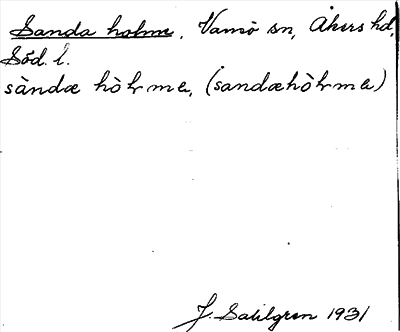 Sanda holme. Vansö sn, Åkers hd,
Söd. l.
sàndæ hòlrma, (sandæhòlrma)
J. Sahlgren 1931